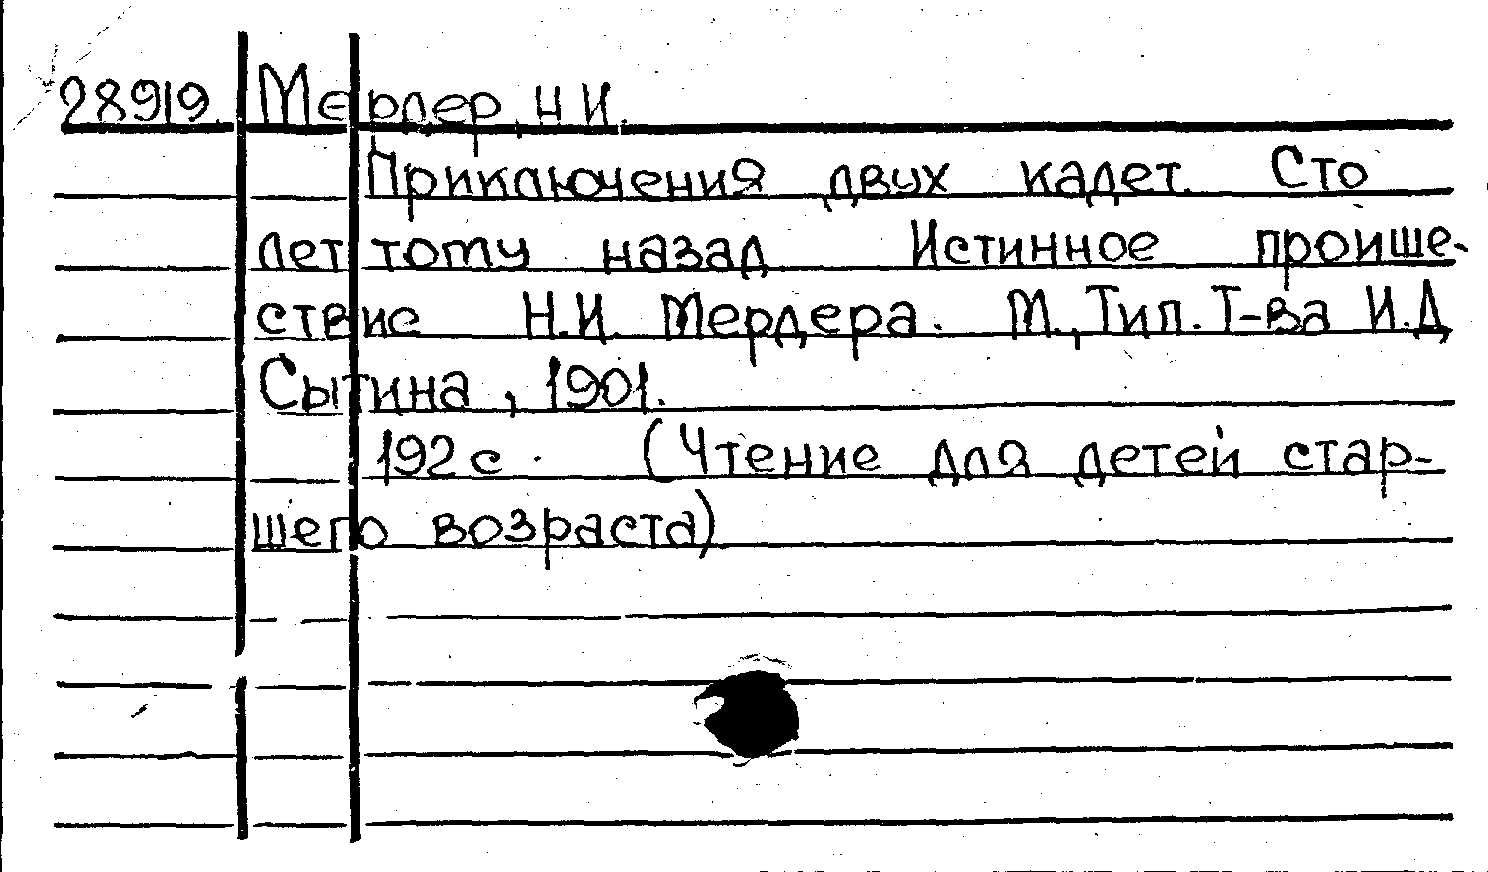 28919. Мердер, Н.И.
Приключения двух кадет. Сто
лет тому назад Истинное проише-
ствие Н.И. Мердера. М., Тип. Т-ва И.Д
Сытина, 1901.
192 с. (Чтение для детей стар-
шего возраста)